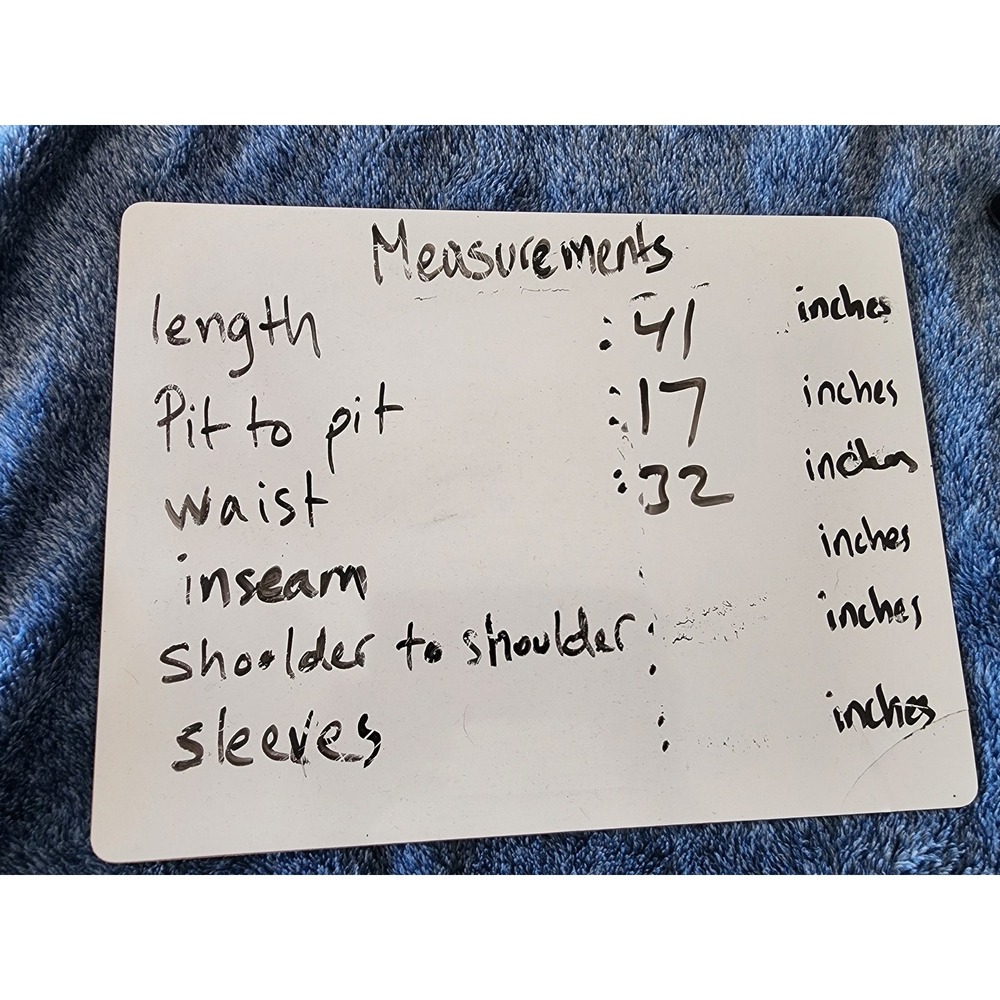 Measurements
length : 41 inches
Pit to pit : 17 inches
waist : 32 inches
inseam inches
Shoolder to shoulder : inches
sleeves : inches